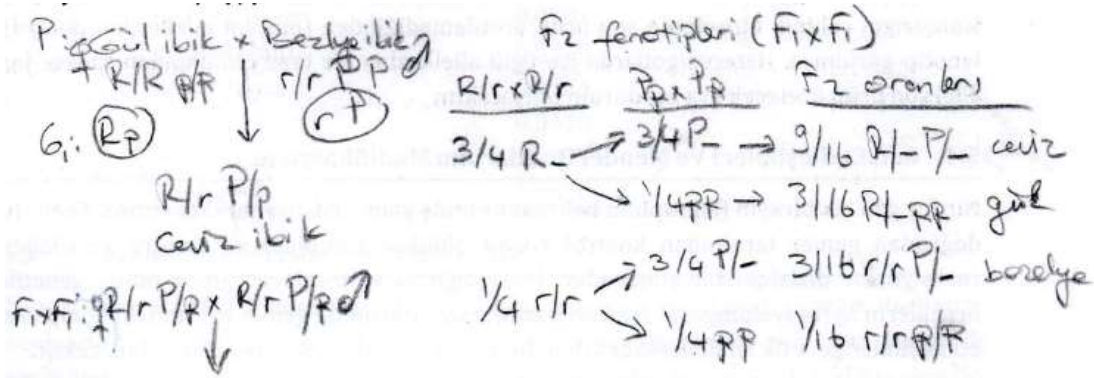 P: ♀ Gül ibik x Bezelye ibik ♂
R/R p/p r/r P/P
G₁: Rp rP
R/r P/p
Ceviz ibik
F₁xF₁: ♀ R/r P/p x R/r P/p ♂
F₂ fenotipleri (F₁xF₁)
R/r x R/r Pp x Pp F₂ oranları
3/4 R- → 3/4 P- → 9/16 R/- P/- ceviz
→ 1/4 pp → 3/16 R/- pp gül
1/4 r/r → 3/4 P/- 3/16 r/r P/- bezelye
→ 1/4 pp 1/16 r/r p/p